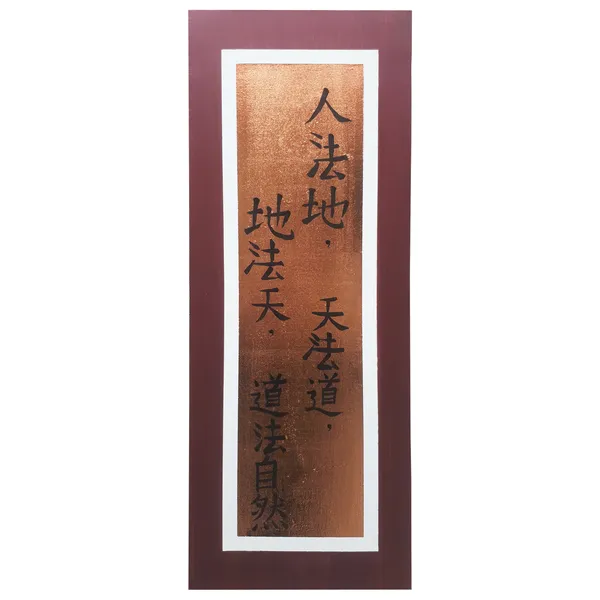 人法地，
地法天，
天法道，
道法自然